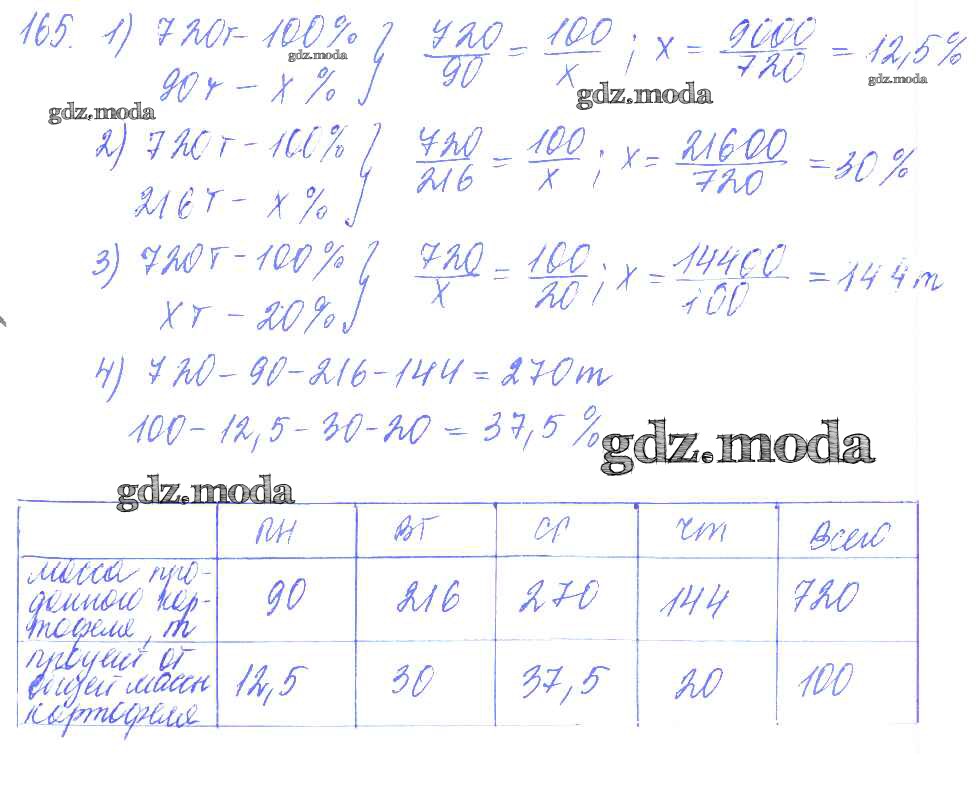 165. 1) 720т – 100% } 720/90 = 100/x ; x = 9000/720 = 12,5%
gdz.moda
90т – x %
gdz.moda
gdz.moda
gdz.moda
2) 720т – 100% } 720/216 = 100/x ; x = 21600/720 = 30 %
216т – x %
3) 720т – 100% } 720/x = 100/20 ; x = 14400/100 = 144т
xт – 20%
4) 720 – 90 – 216 – 144 = 270т
100 – 12,5 – 30 – 20 = 37,5 %
gdz.moda
gdz.moda
ПН ВТ СР Чт Всего
масса про-
данного кар-
тофеля, т 90 216 270 144 720
процент от
общей массы 12,5 30 37,5 20 100
картофеля